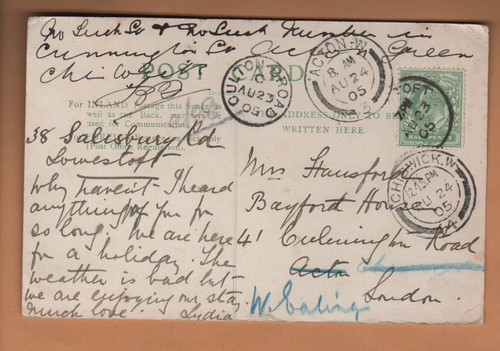 No Such St & No Such Number in
Cunnington St Acton Green
Chiswick
POST CARD.
For INLAND Postage this Space, as
well as the Back, may be
used for Communication
(Post Office Regulation).
ADDRESS ONLY TO BE
WRITTEN HERE.
OULTON BROAD
AU 23
05
ACTON. W.
8 AM
AU 24
05
3
OFT
PM
23
05
CHISWICK. W.
12.45 PM
AU 24
05
38 Salisbury Rd
Lowestoft
Why haven't I heard
anything of you for
so long. We are here
for a holiday. The
weather is bad but
we are enjoying our stay
Much love. Lydia
Mrs Hansford
Bayford House
41 Culmington Road
Acton
W. Ealing
London.